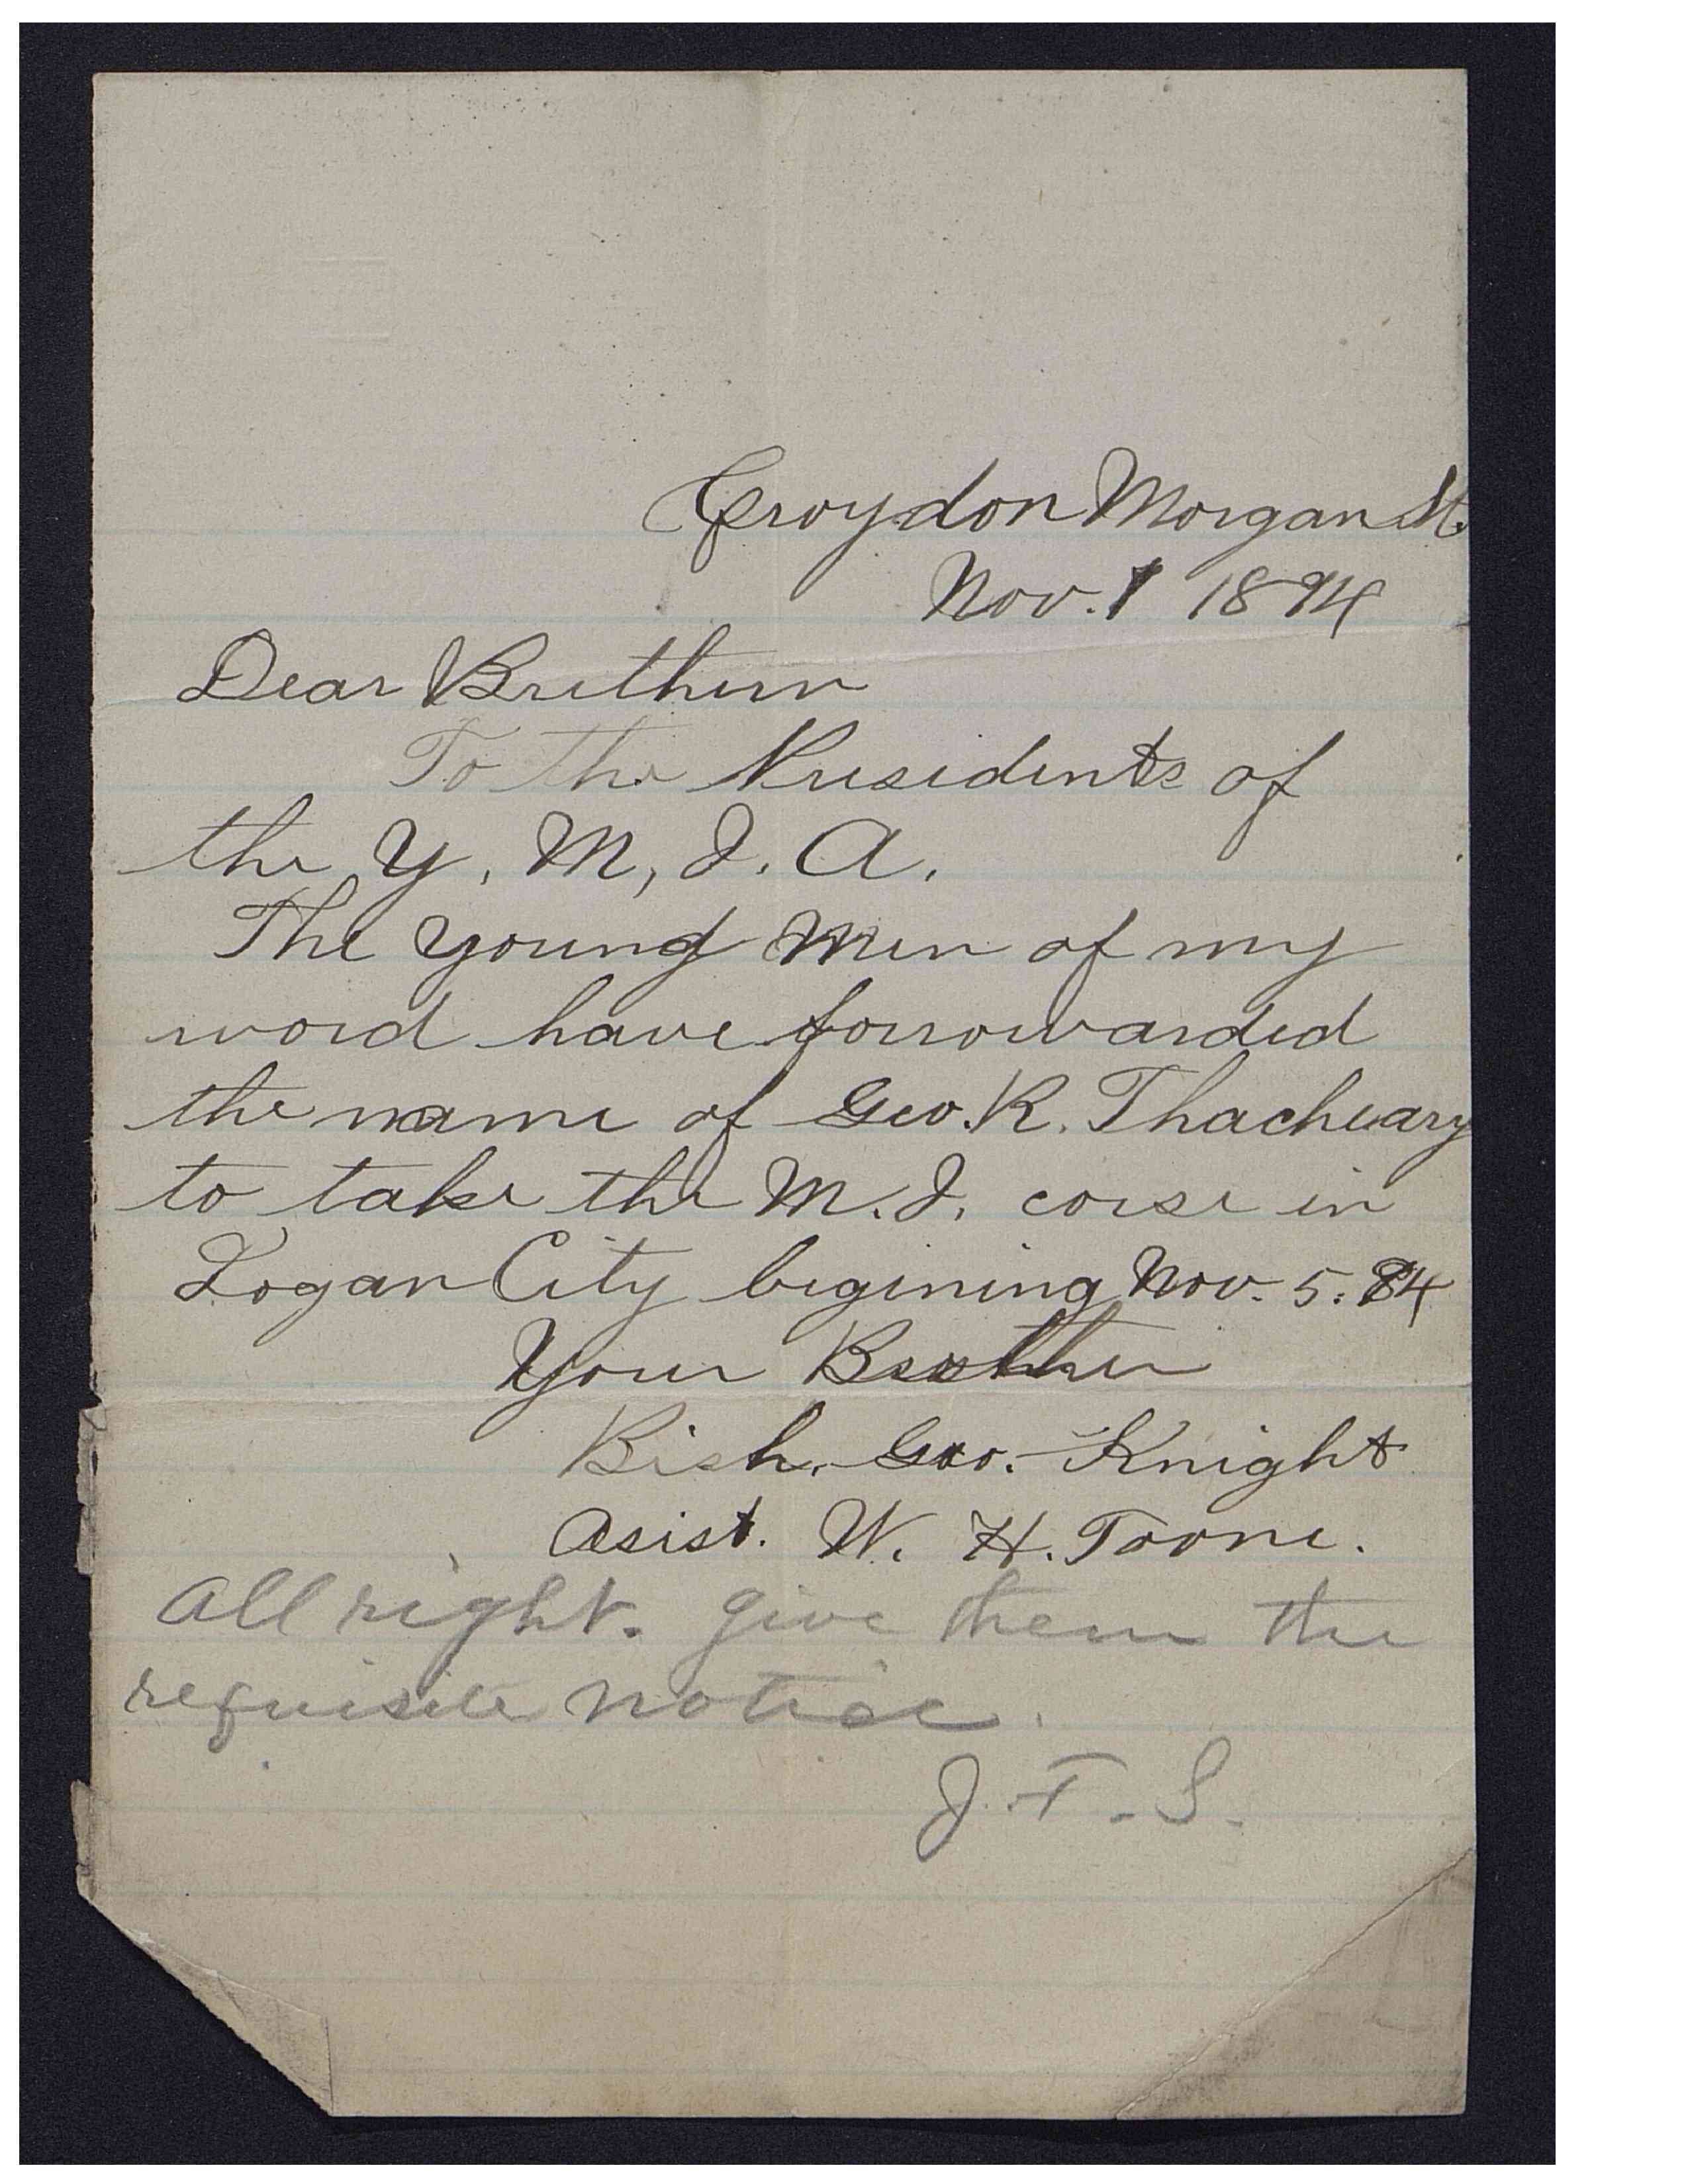 Croydon Morgan St.
Nov. 1 1894
Dear Bretheren
To the Presidents of
the Y, M, I. A.
The young men of my
word have forrowarded
the name of Geo. R. Thacheary
to take the M. I. corse in
Logan City begining Nov. 5. 94
Your Brother
Bish. Geo. Knight
Asist. W. H. Toone.
All right. Give them the
requisite notice.
J. F. S.